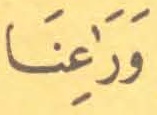 وَرَٰعِنَا